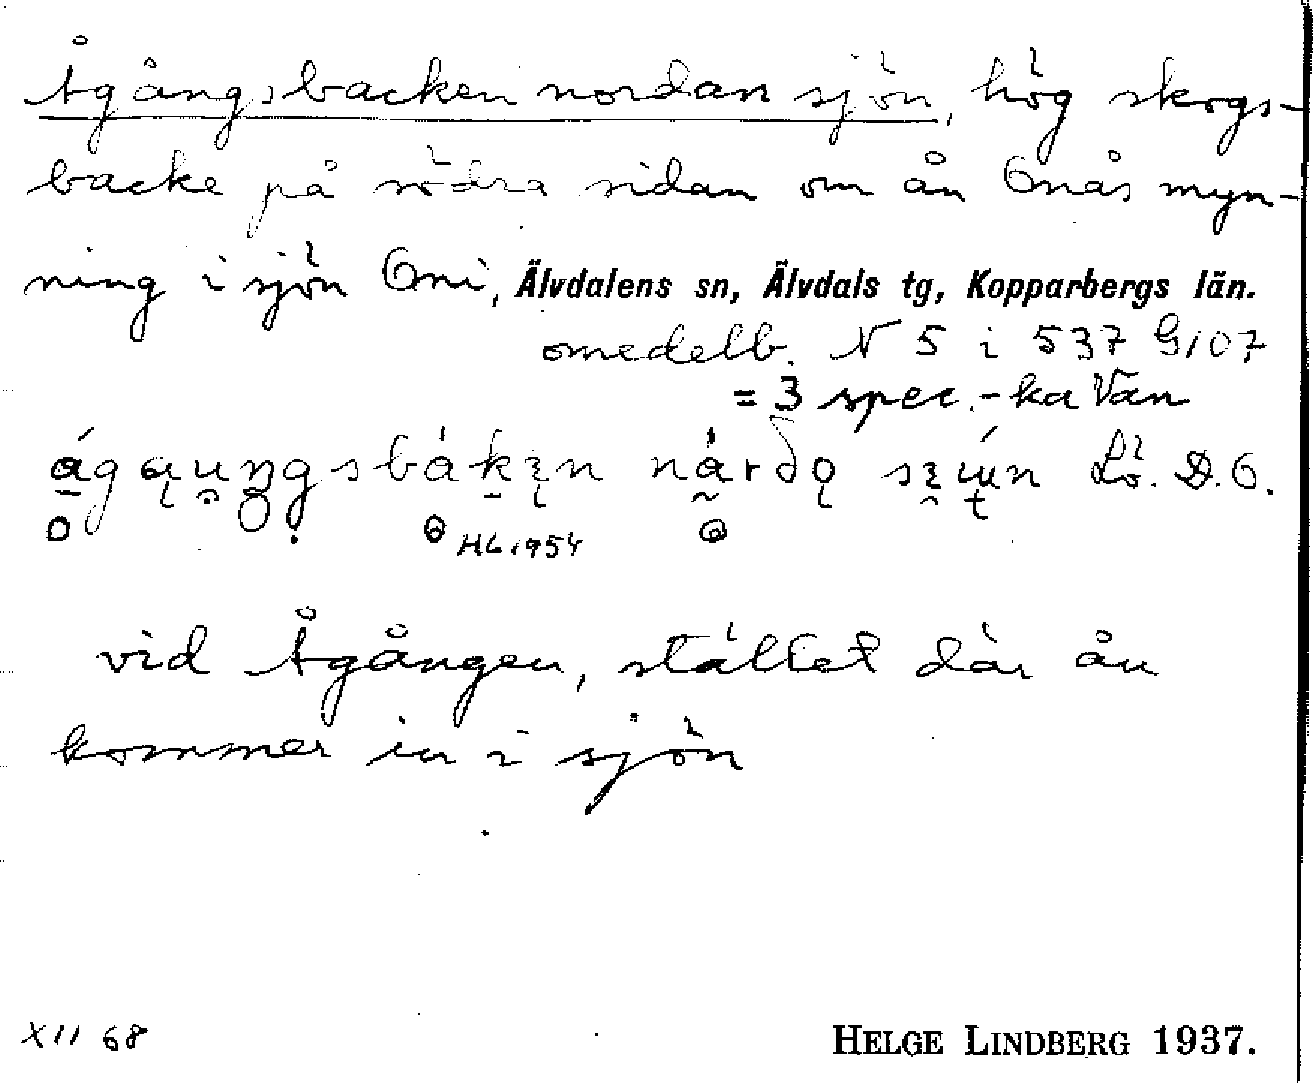 Ågångsbacken nordan sjön, hög skogs-
backe på södra sidan om ån Onås myn-
ning i sjön Oni, Älvdalens sn, Älvdals tg, Kopparbergs län.
omedelb. N 5 i 537 G107
= 3 spec.-ka Vän
HL 1954
vid Ågången, stället där ån
kommer in i sjön
XII 68
HELGE LINDBERG 1937.